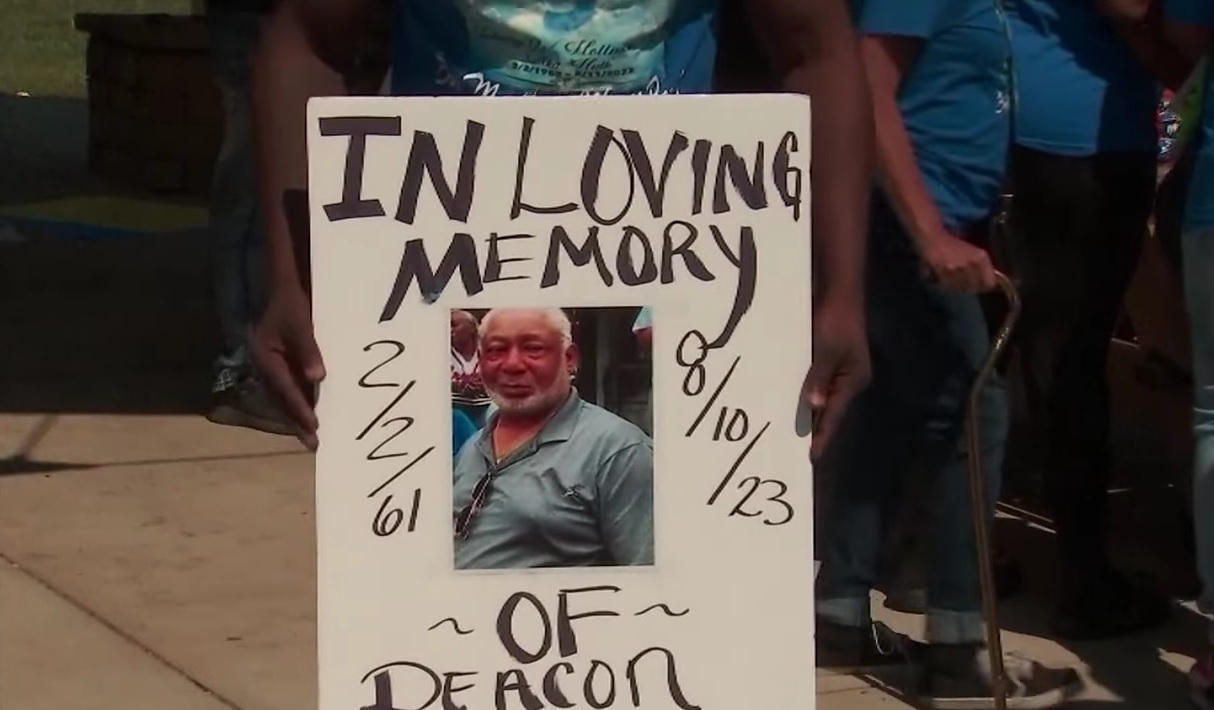 IN LOVING
MEMORY
2/2/61
8/10/23
~OF~
DEACON